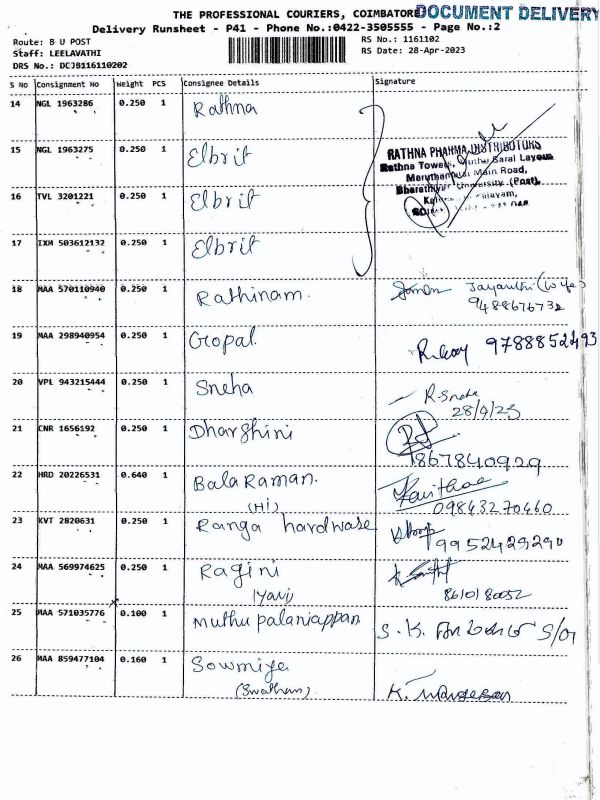 THE PROFESSIONAL COURIERS, COIMBATORE
DOCUMENT DELIVERY
Delivery Runsheet - P41 - Phone No.:0422-3505555 - Page No.:2
Route: B U POST
Staff: LEELAVATHI
DRS No.: DCJB116110202
RS No.: 1161102
RS Date: 28-Apr-2023
S No Consignment No Weight PCS Consignee Details Signature
14 NGL 1963286 0.250 1 Rathna
15 NGL 1963275 0.250 1 Elbrit
RATHNA PHARMA DISTRIBUTORS
Rathna Towers, Guthu Saral Layout
Maruthamalai Main Road,
Bharathiyar University (Post),
16 TVL 3201221 0.250 1 Elbrit
17 IXM 503612132 0.250 1 Elbrit
18 MAA 570110940 0.250 1 Rathinam. Jayanthi (wife)
9488676732
19 MAA 298940954 0.250 1 Gopal. 9788852493
20 VPL 943215444 0.250 1 Sneha R. Sneha
28/4/23
21 CNR 1656192 0.250 1 Dharshini
9867840929
22 HRD 20226531 0.640 1 Bala Raman.
(Hi) 09843270460
23 KVT 2820631 0.250 1 Ranga hardware 9952429290
24 MAA 569974625 0.250 1 Ragini
(Yavi) 8610180052
25 MAA 571035776 0.100 1 Muthu palaniappan S. K. S/o
26 MAA 859477104 0.160 1 Sowmiya
(Swatham) K.